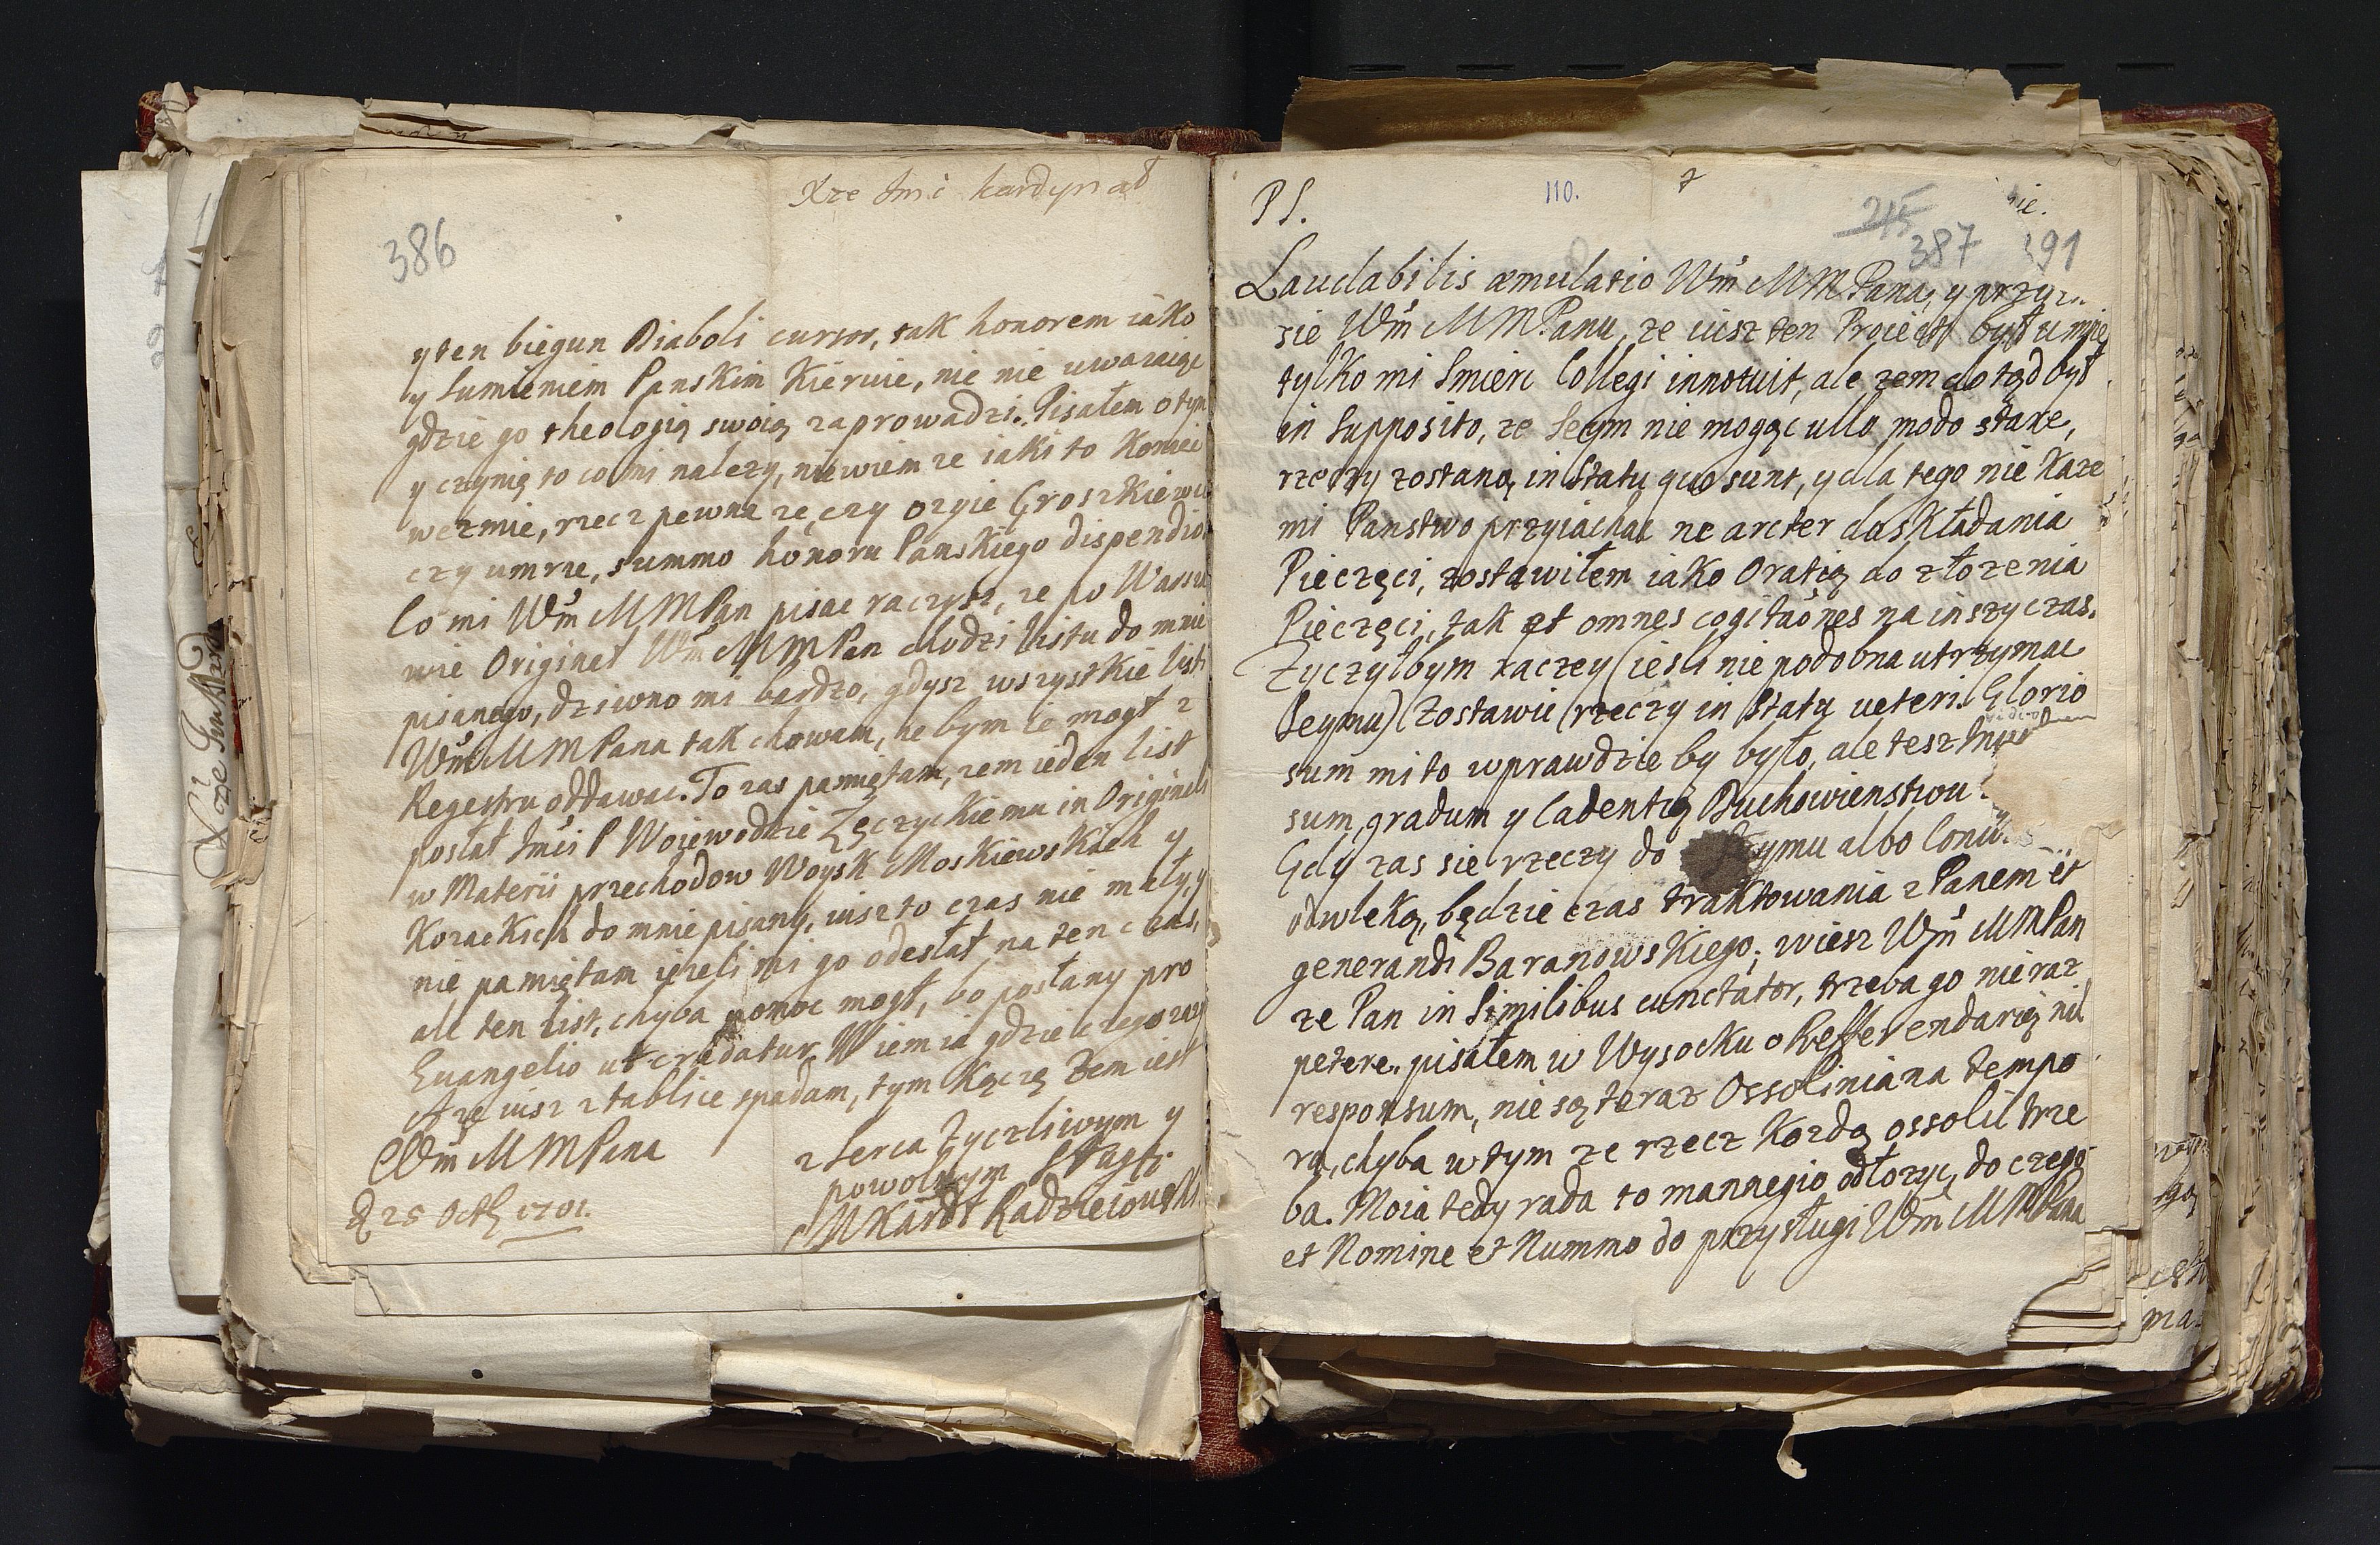 Xze Jmc kardynał
386
y ten biegun Diaboli cursor, tak honorem iako
y sumieniem Panskim Kieruie, nie nie uwazaiąc
gdzie go theologią swoią zaprowadzi. Pisałem o tym
y czynię to co mi nalezy, niewiem ze iaki to Koniec
wezmie, rzecz pewna ze, czy ozyie Groszkiewic
czy umrze, summo honoru Panskiego dispendio
Co mi Wm MMPan pisac raczysz, ze po Warsza
wie Originał Wm MMPan chodzi listu do mnie
pisanego, dziwno mi bardzo, gdysz wszystkie listi
Wm MMPana tak chowam, ze bym ie mogł z
Regestru oddawac. To zas pamiętam, zem ieden list
posłał Jmci P Woiewodzie Łęczyckiemu in Originali
w Materii przechodow Woysk Moskiewskich y
Kozackich do mnie pisany, iusz to czas nie mały, y
nie pamiętam iezeli mi go odesłał na ten czas,
ale ten list, chyba pomoc mogł, bo posłany pro
Euangelio ut credatur. Wiem ia gdzie czego
A ze iusz z tablice spadam, tym Kączę zem iest
Wm MMPana
z serca zyczliwym y
powolnym Sługą
d 28 Octb 1701.
MKardł Radzieiowski
PS.
110.
215
387
191
Laudabilis æmulatio Wm MMPana, y przyz
sie Wm MMPanu, ze iusz ten Proiect był u mnie
tylko mi Smierc Collegi innotuit, ale zem do tąd był
in supposito, ze Seym nie mogąc ullo modo stare,
rzeczy zostaną in statu quo sunt, y dla tego nie Kaze
mi Panstwo przyiachac ne arcter do składania
Pieczęci, zostawiłem iako Oratią do złozenia
Pieczęci, tak et omnes cogitaones na inszy czas.
Zyczyłbym raczey (iesli nie podobna utrzymac
Seymu) Zostawic rzeczy in statu ueteri. Glorio
sum mi to wprawdzie by było, ale tesz
sum, gradum y Cadentią Duchowienstwu
Gdy zas sie rzeczy do ymu albo
odwleką, będzie czas traktowania z Panem et
generandi Baranowskiego; wiesz Wm MMPan
ze Pan in similibus cunctator, trzeba go nie raz
petere. pisałem w Wysocku o Refferendarią nil
responsum, nie są teraz Ossoliniana tempo
ra, chyba w tym ze rzecz Kozdą ossolic trze
ba. Moia tedy rada to mannegio odłozyc, do czego
et Nomine et Nummo do przysługi Wm MMPana